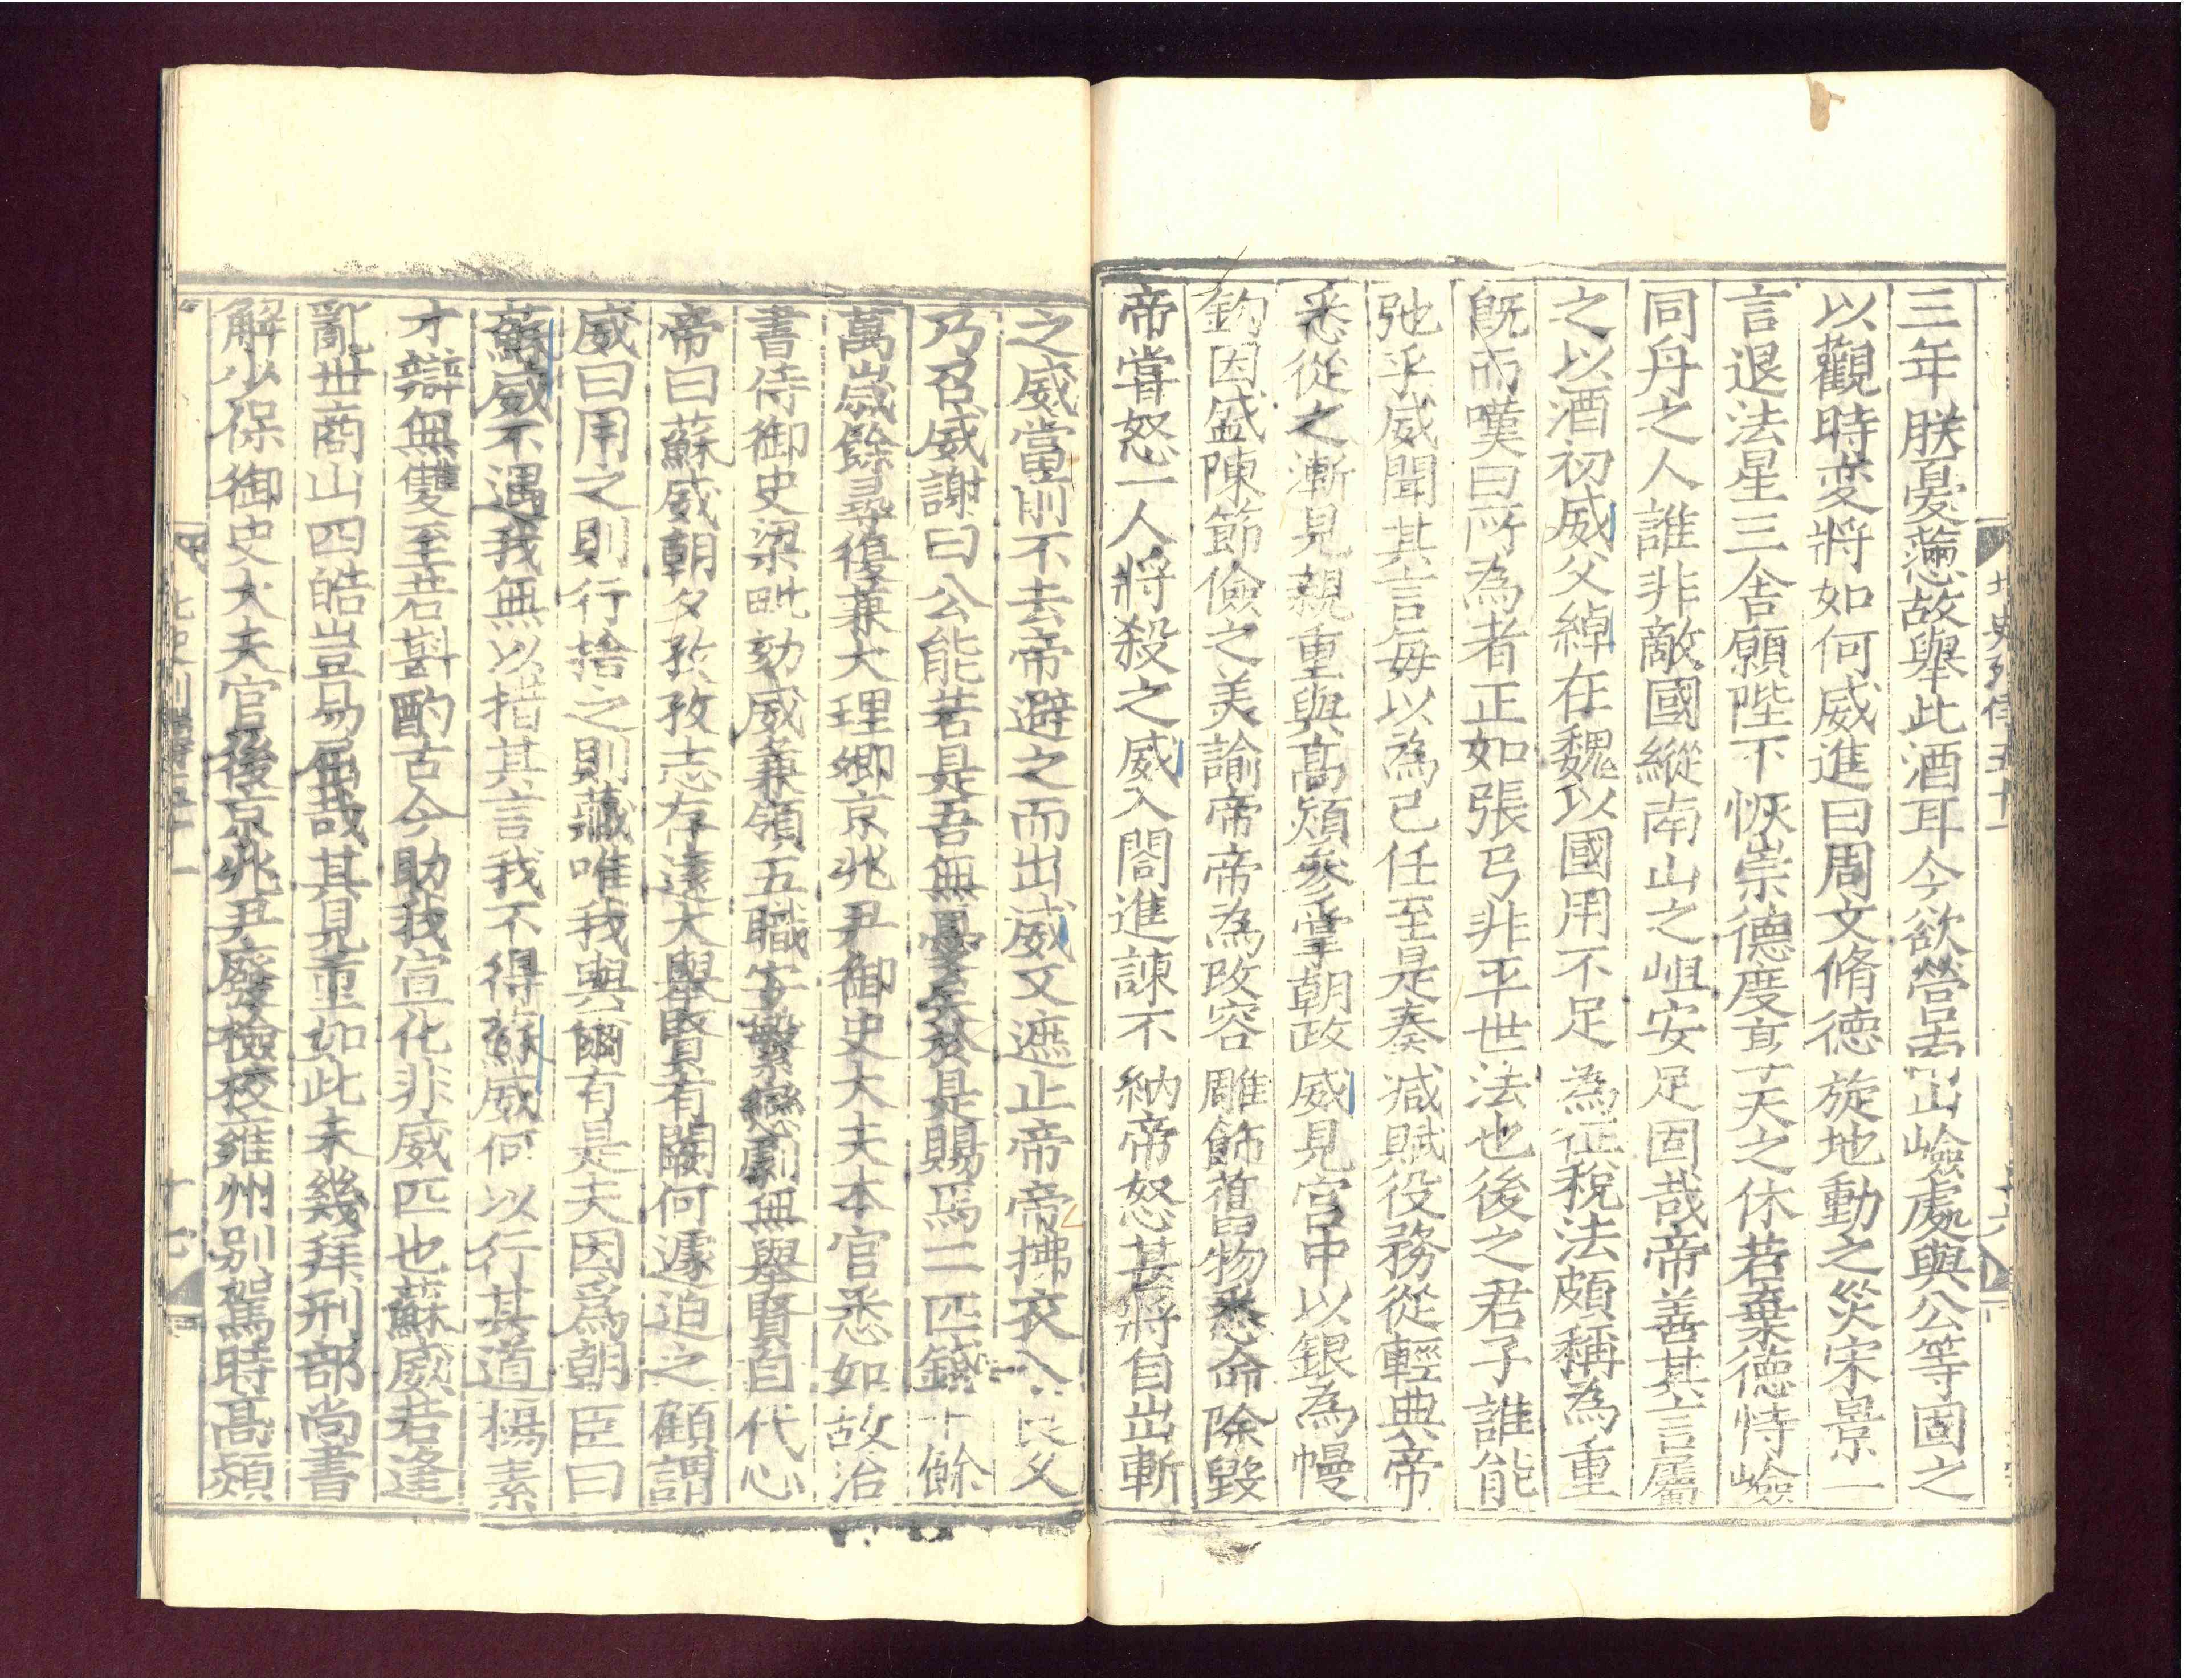 三年朕憂懣故舉此酒耳今欲營南山嶮處與公等固之
以觀時变將如何威進曰周文脩德旋地動之災宋景一
言退法星三舍願陛下恢崇德度享天之休若棄德恃嶮
同舟之人誰非敵國縱南山之岨安足固哉帝善其言屬
之以酒初威父綽在魏以國用不足為征稅法頗稱為重
旣而嘆曰所為者正如張弓非平世法也後之君子誰能
弛乎威聞其言每以為己任至是奏減賦役務從輕典帝
悉從之漸見親重與高熲參掌朝政威見宮中以銀為幔
鈎因盛陳節儉之美諭帝帝為改容雕飾舊物悉命除毀
帝嘗怒一人將殺之威入閤進諫不納帝怒甚將自出斬
之威當前不去帝避之而出威又遮止帝帝拂衣入良久
乃召威謝曰公能若是吾無憂矣於是賜馬二匹錢十餘
萬歲餘尋復兼大理卿京兆尹御史大夫本官悉如故治
書侍御史梁毗劾威兼領五職安繁戀劇無舉賢自代心
帝曰蘇威朝夕孜孜志存遠大舉賢有闕何遽迫之顧謂
威曰用之則行捨之則藏唯我與爾有是夫因爲朝臣曰
蘇威不遇我無以措其言我不得蘇威何以行其道楊素
才辯無雙至若斟酌古今助我宣化非威匹也蘇威若逢
亂世商山四皓豈易屈哉其見重如此未幾拜刑部尚書
解少保御史大夫官後京兆尹廢檢校雍州別駕時高熲
北史列傳五十一
十七